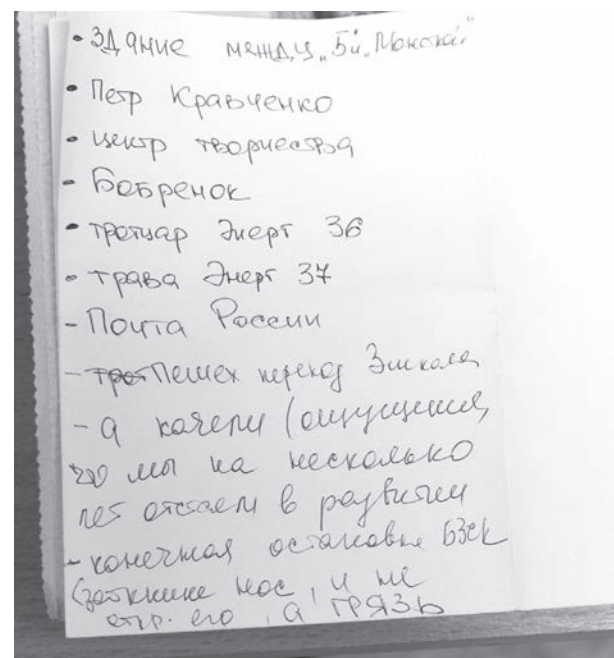 • Здание между „Би„ Монетка"
• Петр Кравченко
• центр творчества
- Бобренок
• тротуар Энерг 36
• трава Энерг 37
- Почта России
- Пешех переход 3школа
- а качели (ощущение,
что мы на несколько
лет отстаем в развитии
- конечная остановка БЗСК
(заткните нос, и не
откр. его, а ГРЯЗЬ